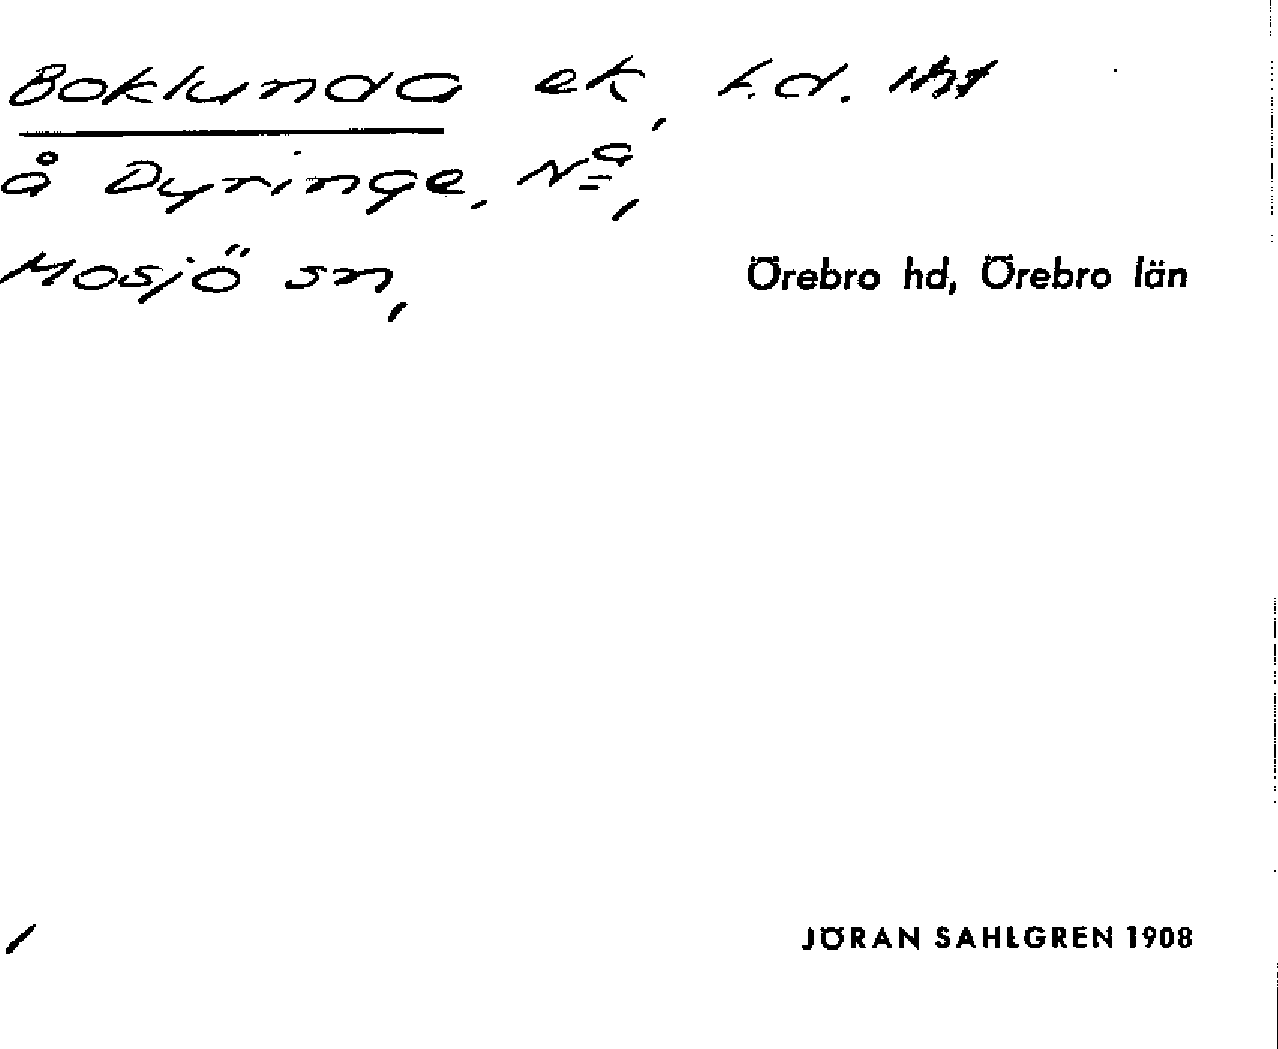 Boklunda ek, f.d.
å Dyringe, Nª,
Mosjö sn, Örebro hd, Örebro län
JÖRAN SAHLGREN 1908